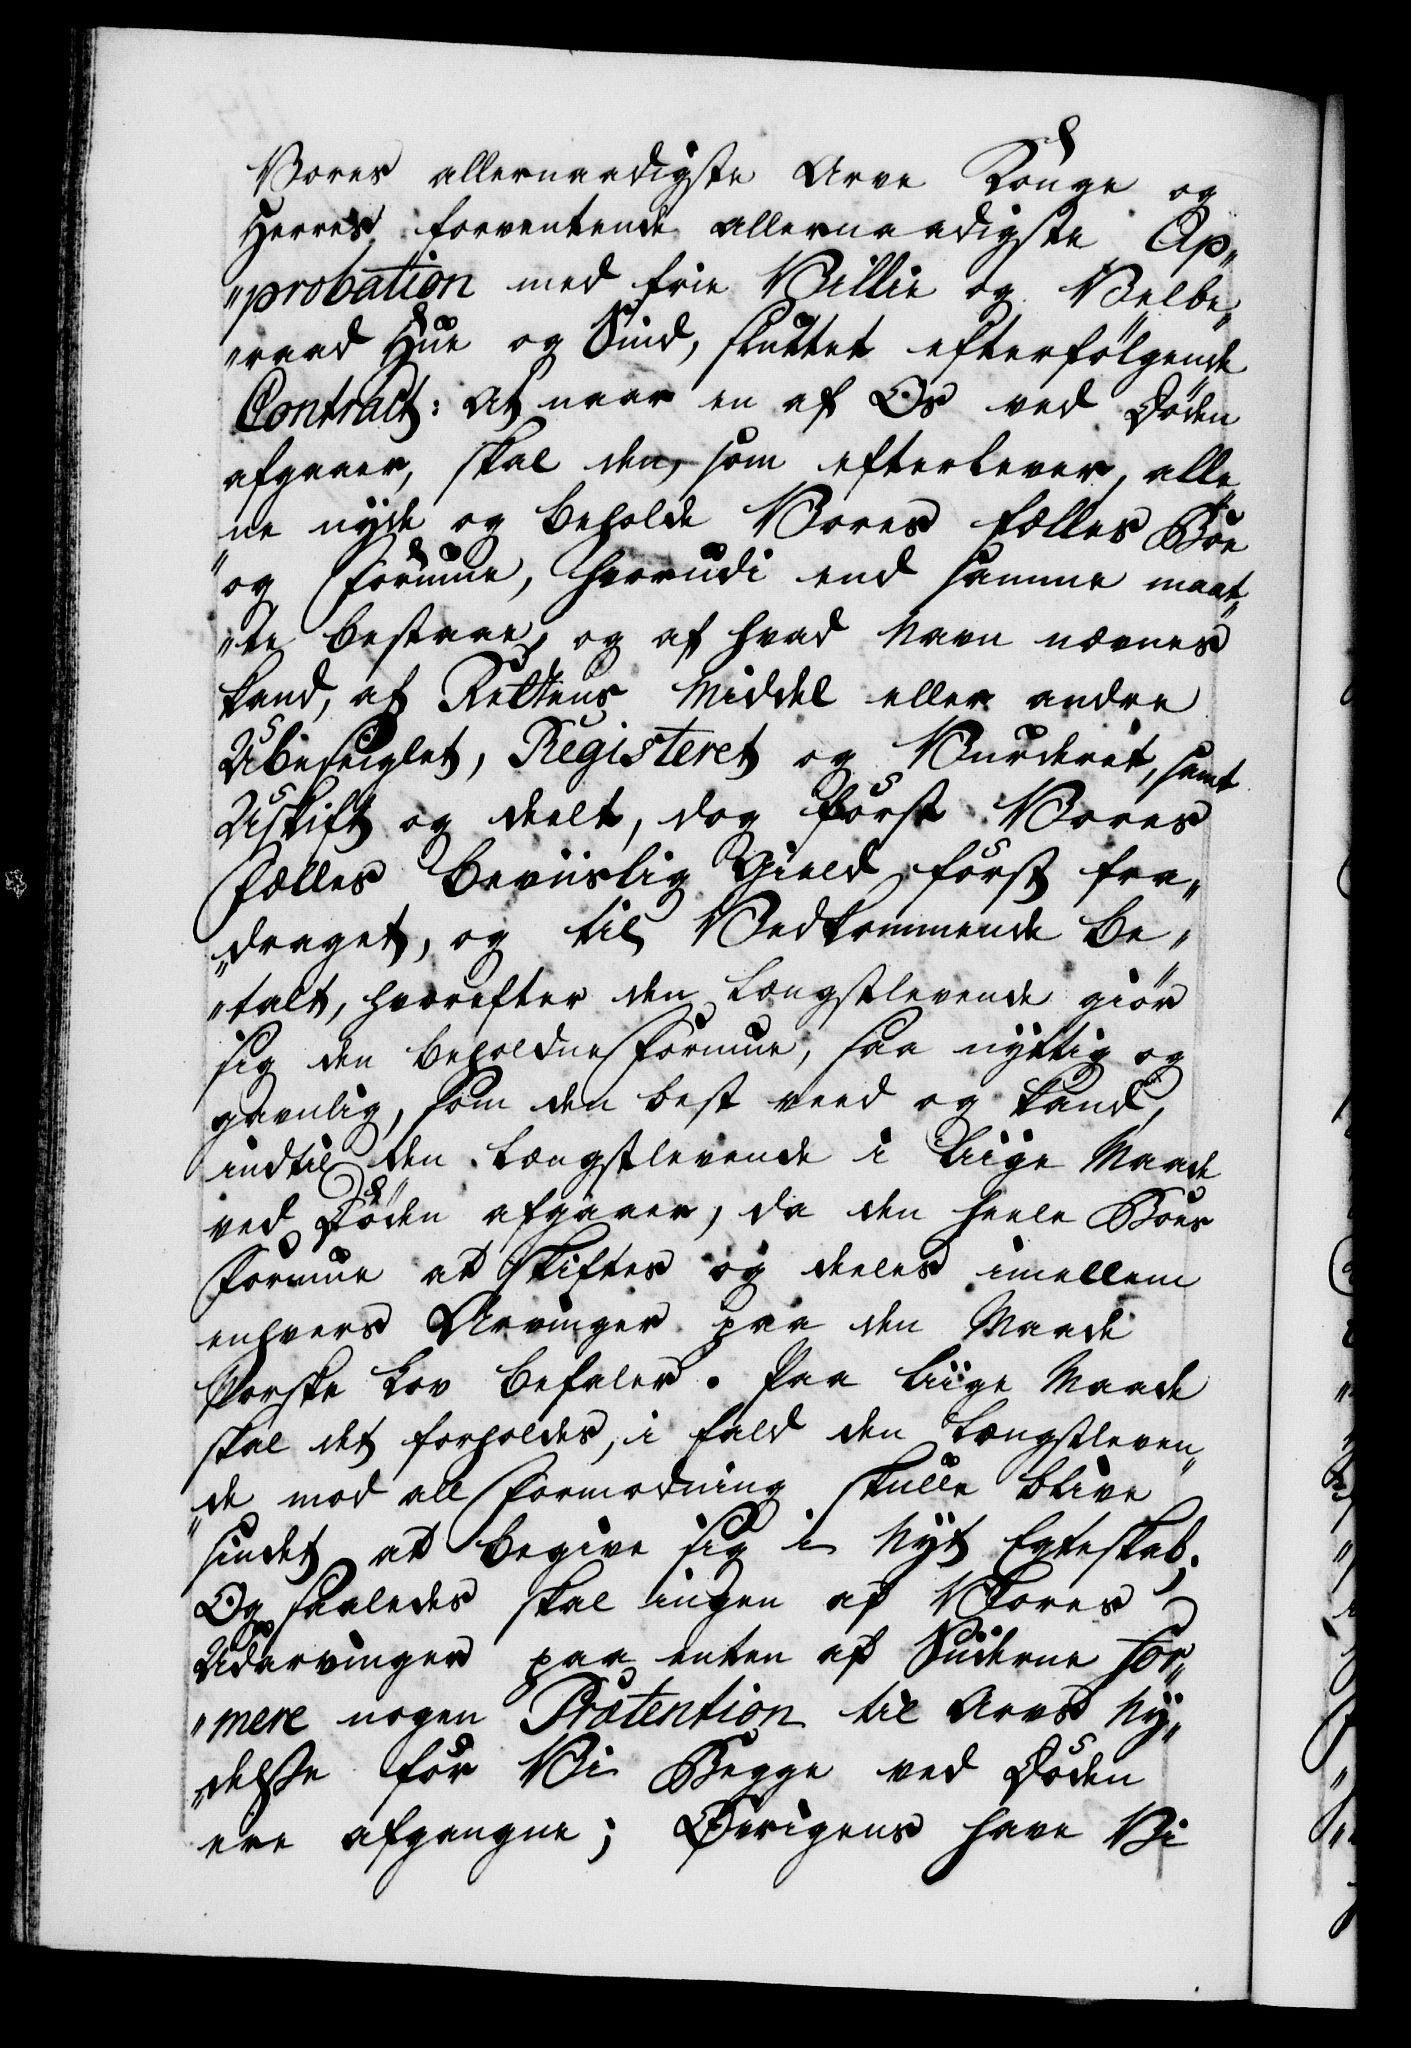 Vores allernaadigste Arve Konge og
Herres forventende allernaadigste Ap„
„probation med frie Villie og Velbe„
„raad Hue og Sind, sluttet efterfølgende
Contract: At naar en af Os ved Døden
afgaaer, skal den, som efterlever, alle„
„ne nyde og beholde Vores fælles Boe
og Formue, hvorudi end samme maat„
„te bestaae, og af hvad Navn nævnes
kand, af Rettens Middel eller andre
Ubeseiglet, Registeret og Vurderet, samt
Uskift og deelt, dog først Vores
fælles beviislig Gield først fra„
„draget, og til Vedkommende be„
„talt, hvorefter den Længstlevende giør
sig den beholdne Formue, saa nyttig og
gavnlig, som den best veed og kand,
indtil den Længstlevende i liige Maade
ved Døden afgaaer, da den heele Boes
Formue at skiftes og deeles imellem
enhvers Arvinger paa den Maade
Norske Lov befaler. Paa liige Maade
skal det forholdes, i fald den Længstleven„
„de mod all Formodning skulle blive
sindet at begive sig i Nyt Egteskab;
Og saaledes skal ingen af Vores
Udarvinger paa enten af Siiderne for„
„mere nogen Prætention til Arvs Ny„
„delse før Vi Begge ved Døden
ere afgangne; Øvrigens have Vi